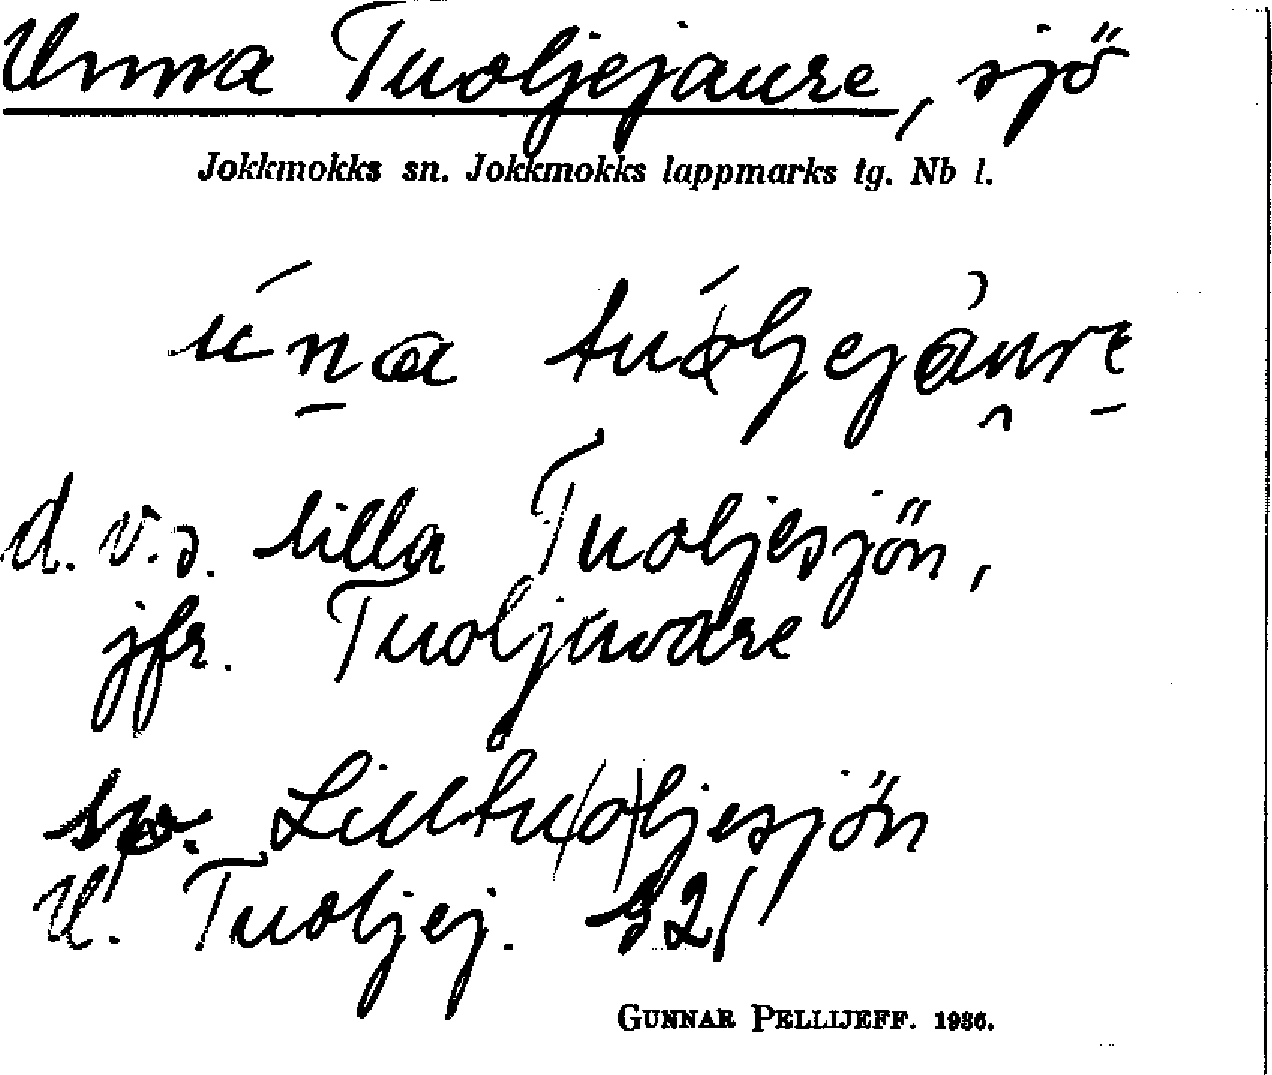 Unna Tuoljejaure, sjö
Jokkmokks sn. Jokkmokks lappmarks tg. Nb l.
d.v.s. lilla Tuoljesjön,
jfr. Tuoljavare
sv. Lilltu(o)ljesjön
U. Tuoljej. 32/
GUNNAR PELLIJEFF. 1936.